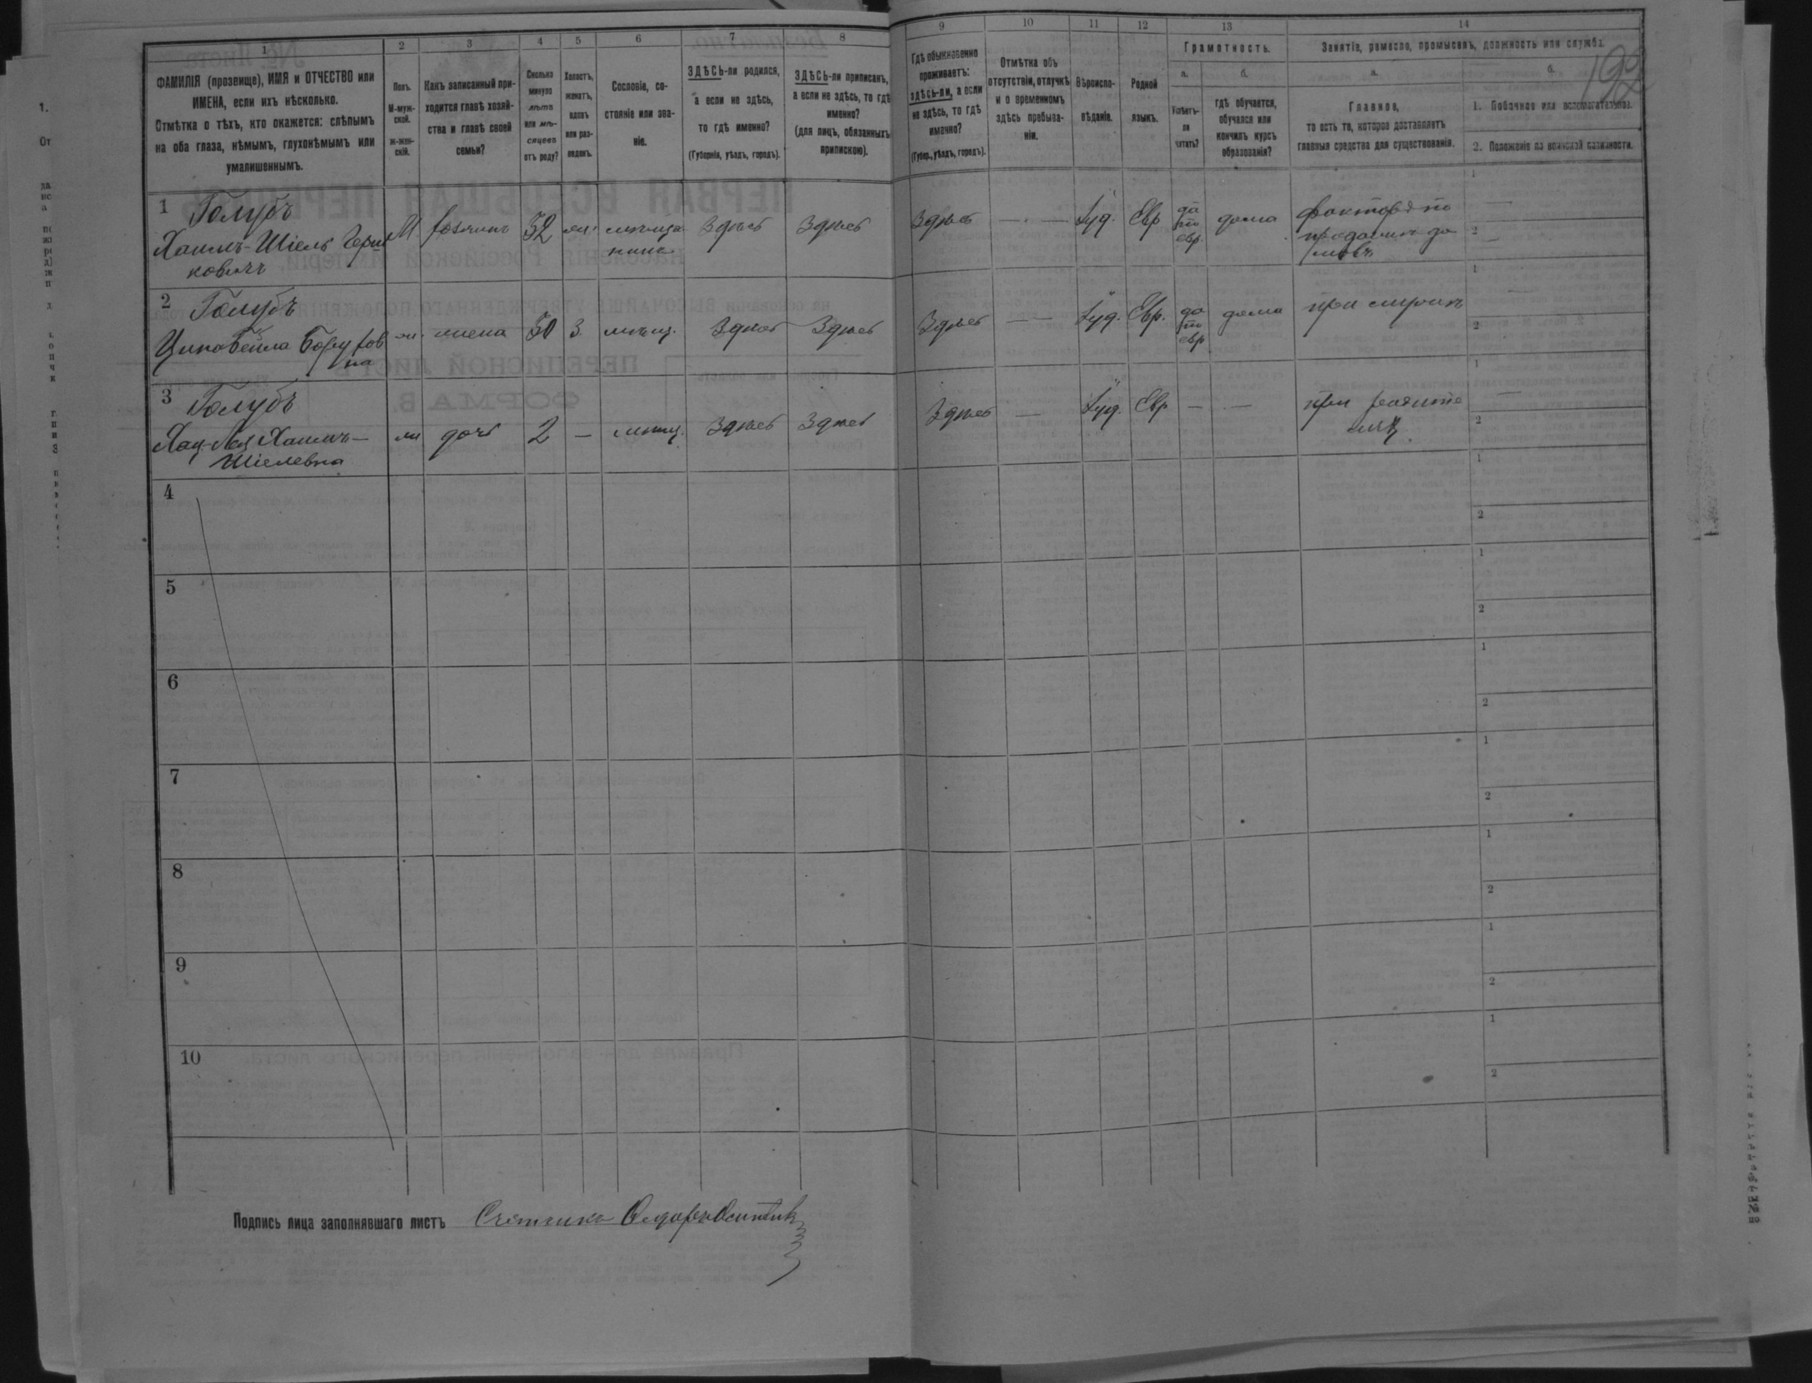 1
2
3
4
5
6
7
8
9
10
11
12
13
14
ФАМИЛІЯ (прозвище), ИМЯ и ОТЧЕСТВО или
ИМЕНА, если ихъ нѣсколько.
Отмѣтка о тѣхъ, кто окажется: слѣпымъ
на оба глаза, нѣмымъ, глухонѣмымъ или
умалишеннымъ.
Полъ.
М-муж-
ской.
ж-жен-
скій.
Какъ записанный при-
ходится главѣ хозяй-
ства и главѣ своей
семьи?
Сколько
минуло
лѣтъ
или мѣ-
сяцевъ
отъ роду?
Холостъ,
женатъ,
вдовъ
или раз-
веденъ.
Сословіе, со-
стояніе или зва-
ніе.
ЗДѢСЬ-ли родился,
а если не здѣсь,
то гдѣ именно?
(Губернія, уѣздъ, городъ).
ЗДѢСЬ-ли приписанъ,
а если не здѣсь, то гдѣ
именно?
(для лицъ, обязанныхъ
припискою).
Гдѣ обыкновенно
проживаетъ:
здѣсь-ли, а если
не здѣсь, то гдѣ
именно?
(Губер., уѣздъ, городъ).
Отмѣтка объ
отсутствіи, отлучкѣ
и о временномъ
здѣсь пребыва-
ніи.
Вѣроиспо-
вѣданіе.
Родной
языкъ.
Грамотность.
а.
б.
Умѣетъ-
ли
читать?
гдѣ обучается,
обучался или
кончилъ курсъ
образованія?
Занятіе, ремесло, промыселъ, должность или служба.
а.
б.
Главное,
то есть то, которое доставляетъ
главныя средства для существованія.
1. Побочное или вспомогательное.
2. Положеніе по воинской повинности.
192
1 Голубъ
Хаимъ-Шіель
новичъ
М хозяинъ 32 мѣща
нинъ Здѣсь Здѣсь Здѣсь — Іуд. Евр да
по
евр. дома факторъ по
продажѣ до
мовъ
2 Голубъ
Борухов
на
ж. жена 30 з. мѣщ. Здѣсь Здѣсь Здѣсь — Іуд. Евр. да
по
евр дома при мужѣ
3 Голубъ
Хаимъ-
Шіелевна
ж дочь 2 — мѣщ. Здѣсь Здѣсь Здѣсь — Іуд. Евр — — при родите
4
5
6
7
8
9
10
Подпись лица заполнявшаго листъ Счетчикъ